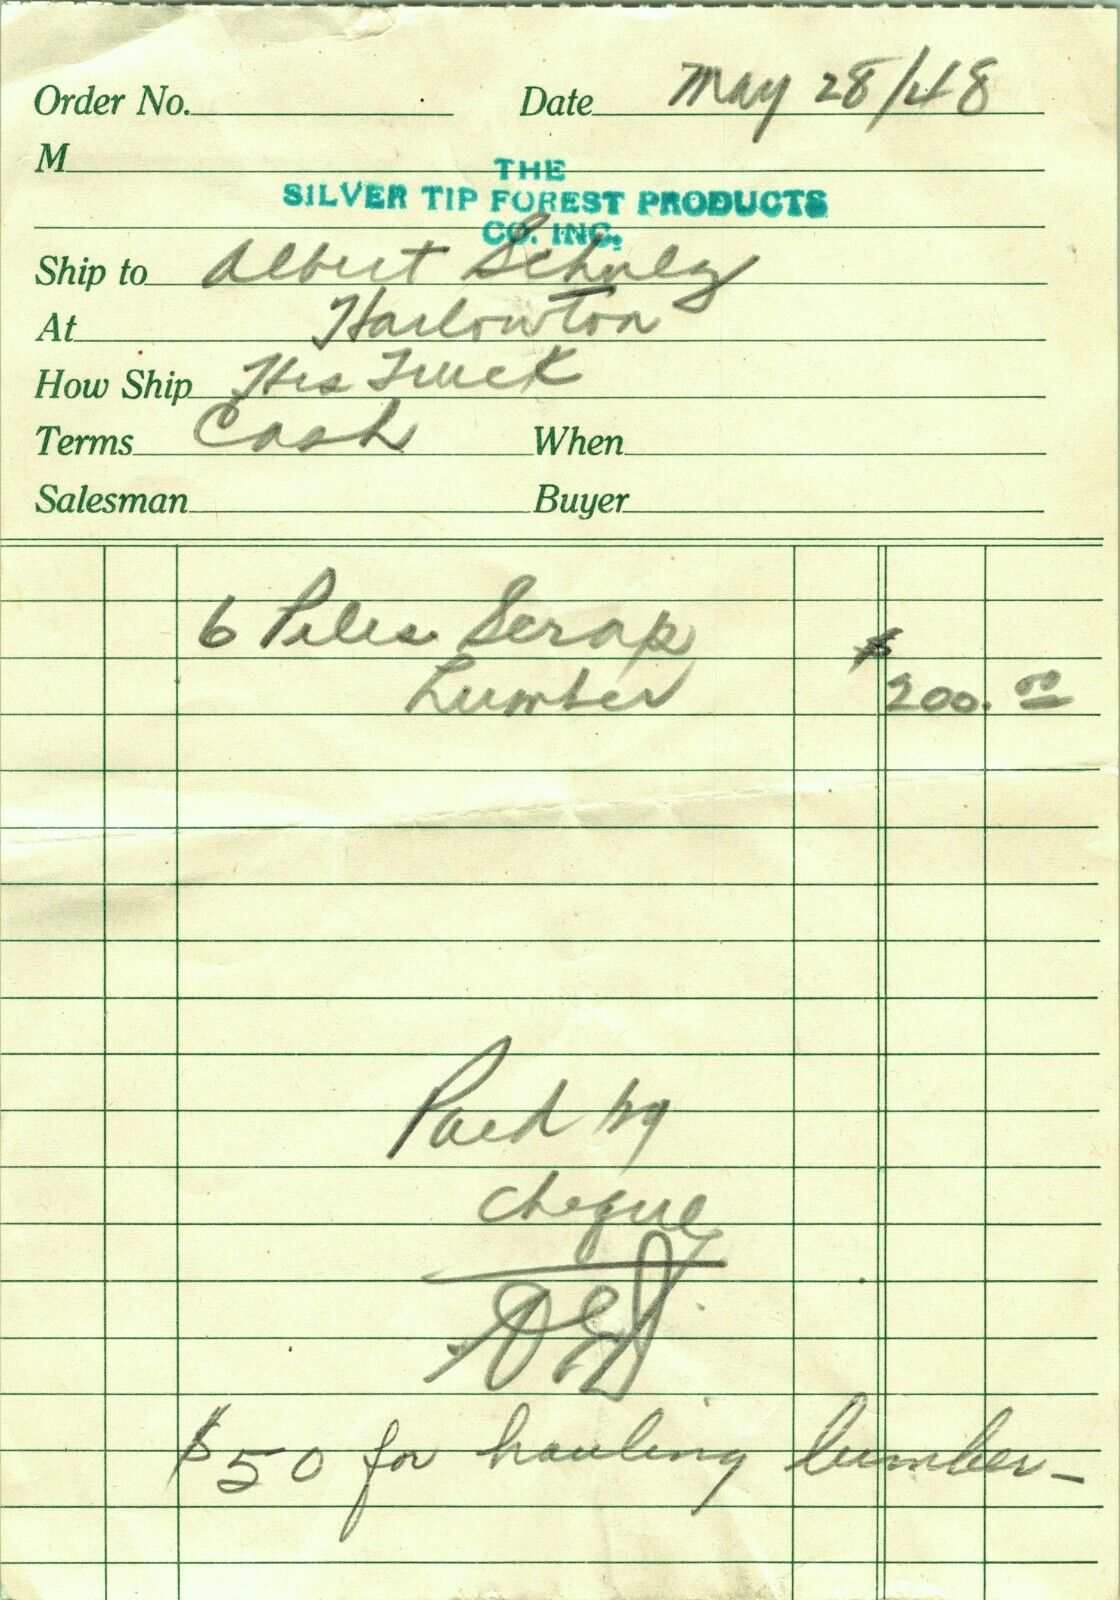 Order No. Date May 28/48
M
THE
SILVER TIP FOREST PRODUCTS
CO. INC.
Ship to Albert Schulz
At Harlowton
How Ship His Truck
Terms Cash When
Salesman Buyer
6 Piles Scrap
Lumber $200.00
Paid by
cheque
$50 for hauling lumber-